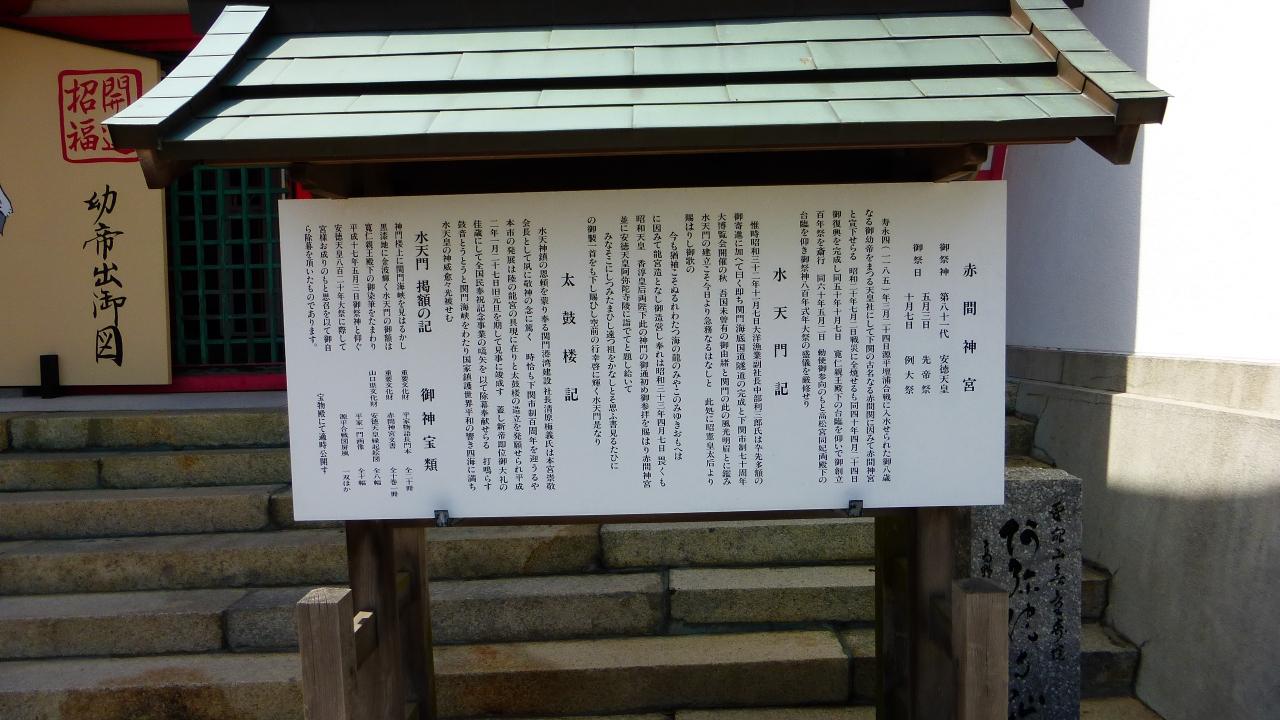 赤間神宮
御祭神 第八十一代 安徳天皇
御祭日 五月二日 先帝祭
十月七日 例大祭
寿永四(一一八五)年三月二十四日源平壇浦合戦に入水せられた御八歳
なる御幼帝をまつる天皇社にして下関の古名なる赤間関に因みて赤間神宮
と宣下せらる 昭和二十年七月二日戦災にを焼せるも同四十年四月二十四日
御復興を完成し同五十年十月七日 寛仁親王殿下の台臨を仰いで御創立
百年祭を斎行 同六十年五月二日 勅使御参向のもと高松宮同妃両殿下の
台臨を仰ぎ御祭神八百年式年大祭の盛儀を厳修せり
水天門記
惟時昭和三十二年十一月七日大洋漁業副社長中部利三郎氏は率先多額の
御寄進に加へて曰く即ち関門海底国道隧道の完成と下関市制七十周年
大博覧会開催の秋 吾国未曽有の御由緒と関門の此の風光明眉とに鑑み
水天門の建立こそ今日より急務なるはなしと 此処に昭憲皇太后より
賜はりし御歌の
今も猶袖こそぬるれわたつ海の龍のみやこのみゆきおもへは
に因みて龍宮造となし御造営し奉れは昭和三十三年四月七日 畏くも
昭和天皇 香淳皇后両陛下此の神門の御通初め御参拝を賜はり赤間神宮
並に安徳天皇阿弥陀寺陵に詣でてと題し給いて
みなそこにしつみたまひし遠つ祖をかなしとぞ思ふ書見るたひに
の御製一首をも下し賜ひし空前の行幸啓に輝く水天門是なり
太鼓楼記
水天神鎮の恩頼を蒙り奉る関門港湾建設 社長清原梅義氏は本宮崇敬
会長として夙に敬神の念に篤く 時恰も下関市制百周年を迎うるや
本市の発展は陸の龍宮の具現に在りと太鼓楼の造立を発願せられ平成
二年一月二十七日旧元旦を期して見事に竣成す 蓋し新帝即位御大礼の
佳歳にして全国民奉祝記念事業の嚆矢を以て除幕奉献せらる 打鳴らす
鼓音とうとうと関門海峡をわたり国家鎮護世界平和の響き四海に満ち
水天皇の神威愈々光被せむ
水天門 掲額の記
神門楼上に関門海峡を見はるかし
黒漆地に金波輝く水天門の御額は
寛仁親王殿下の御染筆をたまわり
平成十七年五月三日御祭神と仰ぐ
安徳天皇八百二十年大祭に際して
宮様お成りのもと思召を以て御自
ら除幕を頂いたものであります。
御神宝類
重要文化財 平家物語長門本 全二十冊
重要文化財 赤間神宮文書 全十巻一冊
山口県文化財 安徳天皇縁起絵図 全八幅
平家一門画像 全十幅
源平合戦図屏風 一双ほか
宝物殿にて適時公開す
開運
招福
幼帝出御図